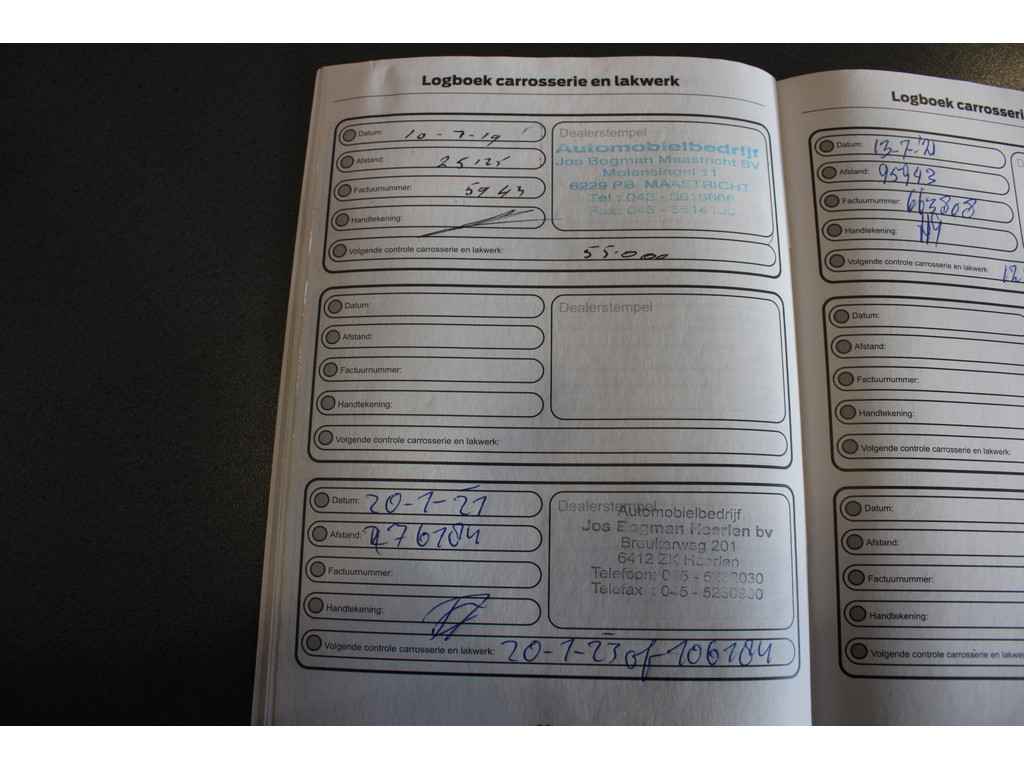 Logboek carrosserie en lakwerk
Datum: 10-7-19
Afstand:
Factuurnummer: 5943
Handtekening:
Volgende controle carrosserie en lakwerk: 55.000
Dealerstempel
Automobielbedrijf
Jos Bogman Maastricht BV
Molensingel 11
6229 PB MAASTRICHT
Datum:
Afstand:
Factuurnummer:
Handtekening:
Volgende controle carrosserie en lakwerk:
Dealerstempel
Datum: 20-1-21
Afstand: 76184
Factuurnummer:
Handtekening:
Volgende controle carrosserie en lakwerk: 20-1-23 of 106184
Dealerstempel
Automobielbedrijf
Jos Bogman Heerlen bv
Breukerweg 201
6412 ZK Heerlen
Telefoon: 045 -
Telefax : 045 -
Logboek carrosserie
Datum: 13-7-21
Afstand: 95943
Factuurnummer: 663808
Handtekening:
Volgende controle carrosserie en lakwerk: 12
Datum:
Afstand:
Factuurnummer:
Handtekening:
Volgende controle carrosserie en lakwerk:
Datum:
Afstand:
Factuurnummer:
Handtekening:
Volgende controle carrosserie en lakwerk